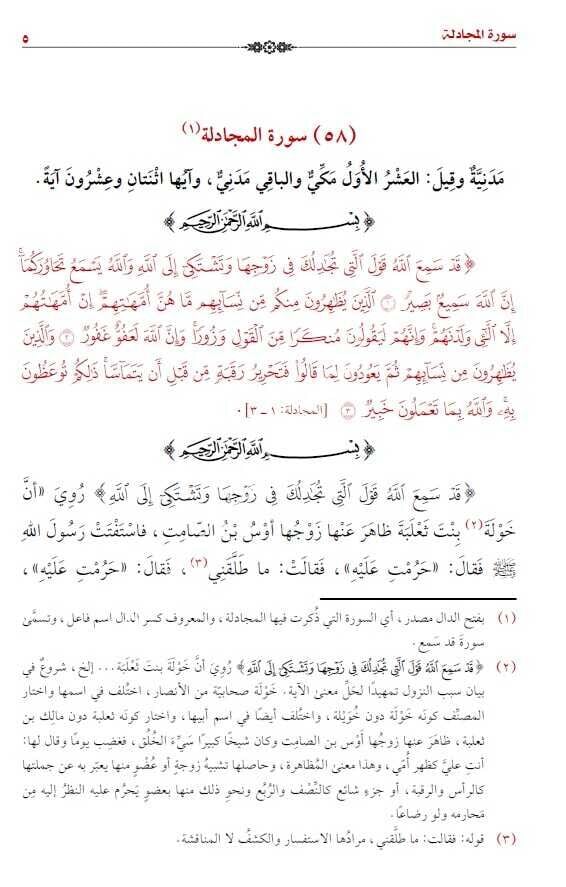 سورة المجادلة ٥
(٥٨) سورة المجادلة(١)
مَدَنِيَّةٌ وقِيلَ: العَشْرُ الأُوَلُ مَكِّيٌّ والباقِي مَدَنِيٌّ، وآيُها اثْنَتانِ وعِشْرُونَ آيَةً.
﴿بِسْمِ اللَّهِ الرَّحْمَٰنِ الرَّحِيمِ﴾
﴿قَدْ سَمِعَ اللَّهُ قَوْلَ الَّتِي تُجَٰدِلُكَ فِي زَوْجِهَا وَتَشْتَكِي إِلَى اللَّهِ وَاللَّهُ يَسْمَعُ تَحَاوُرَكُمَا ۚ
إِنَّ اللَّهَ سَمِيعٌ بَصِيرٌ ۝١ الَّذِينَ يُظَٰهِرُونَ مِنكُم مِّن نِّسَآئِهِم مَّا هُنَّ أُمَّهَٰتِهِمْ ۖ إِنْ أُمَّهَٰتُهُمْ
إِلَّا الَّٰٓـِٔي وَلَدْنَهُمْ ۚ وَإِنَّهُمْ لَيَقُولُونَ مُنكَرًا مِّنَ الْقَوْلِ وَزُورًا ۚ وَإِنَّ اللَّهَ لَعَفُوٌّ غَفُورٌ ۝٢ وَالَّذِينَ
يُظَٰهِرُونَ مِن نِّسَآئِهِمْ ثُمَّ يَعُودُونَ لِمَا قَالُوا فَتَحْرِيرُ رَقَبَةٍ مِّن قَبْلِ أَن يَتَمَآسَّا ۚ ذَٰلِكُمْ تُوعَظُونَ
بِهِ ۚ وَاللَّهُ بِمَا تَعْمَلُونَ خَبِيرٌ ۝٣﴾ [المجادلة: ١ - ٣].
﴿بِسْمِ اللَّهِ الرَّحْمَٰنِ الرَّحِيمِ﴾
﴿قَدْ سَمِعَ اللَّهُ قَوْلَ الَّتِي تُجَٰدِلُكَ فِي زَوْجِهَا وَتَشْتَكِي إِلَى اللَّهِ﴾ رُوِيَ «أنَّ
خَوْلَةَ(٢) بِنْتَ ثَعْلَبَةَ ظاهَرَ عَنْها زَوْجُها أوْسُ بْنُ الصّامِتِ، فاسْتَفْتَتْ رَسُولَ اللهِ
ﷺ فَقالَ: «حَرُمْتِ عَلَيْهِ»، فَقالَتْ: ما طَلَّقَنِي(٣)، فَقالَ: «حَرُمْتِ عَلَيْهِ»،
(١) بفتح الدال مصدر، أي السورة التي ذُكرت فيها المجادلة، والمعروف كسر الدال اسم فاعل، وتسمَّى
سورةَ قد سَمِع.
(٢) ﴿قَدْ سَمِعَ اللَّهُ قَوْلَ الَّتِي تُجَٰدِلُكَ فِي زَوْجِهَا وَتَشْتَكِي إِلَى اللَّهِ﴾ رُوِيَ أنَّ خَوْلَةَ بنتَ ثَعْلَبَة... إلخ، شروعٌ في
بيان سبب النزول تمهيدًا لحَلِّ معنى الآية. خَوْلَة صحابيّة من الأنصار، اختُلف في اسمها واختار
المصنّف كونَه خَوْلَة دون خُوَيْلة، واختُلف أيضًا في اسم أبيها، واختار كونه ثعلبة دون مالِك بن
ثعلبة، ظاهَرَ عنها زوجُها أوْس بن الصامت وكان شيخًا كبيرًا سَيِّءَ الخُلُق، فغضِب يومًا وقال لها:
أنتِ عليَّ كظهر أُمّي، وهذا معنى المُظاهرة، وحاصلها تشبيهُ زوجةٍ أو عُضْوٍ منها يعبّر به عن جملتها
كالرأس والرقبة، أو جزءٍ شائع كالنِّصْف والرُّبُع ونحوِ ذلك منها بعضوٍ يَحرُم عليه النظرُ إليه مِن
مَحارمه ولو رضاعًا.
(٣) قوله: فقالت: ما طلَّقني، مرادُها الاستفسار والكشفُ لا المناقشة.